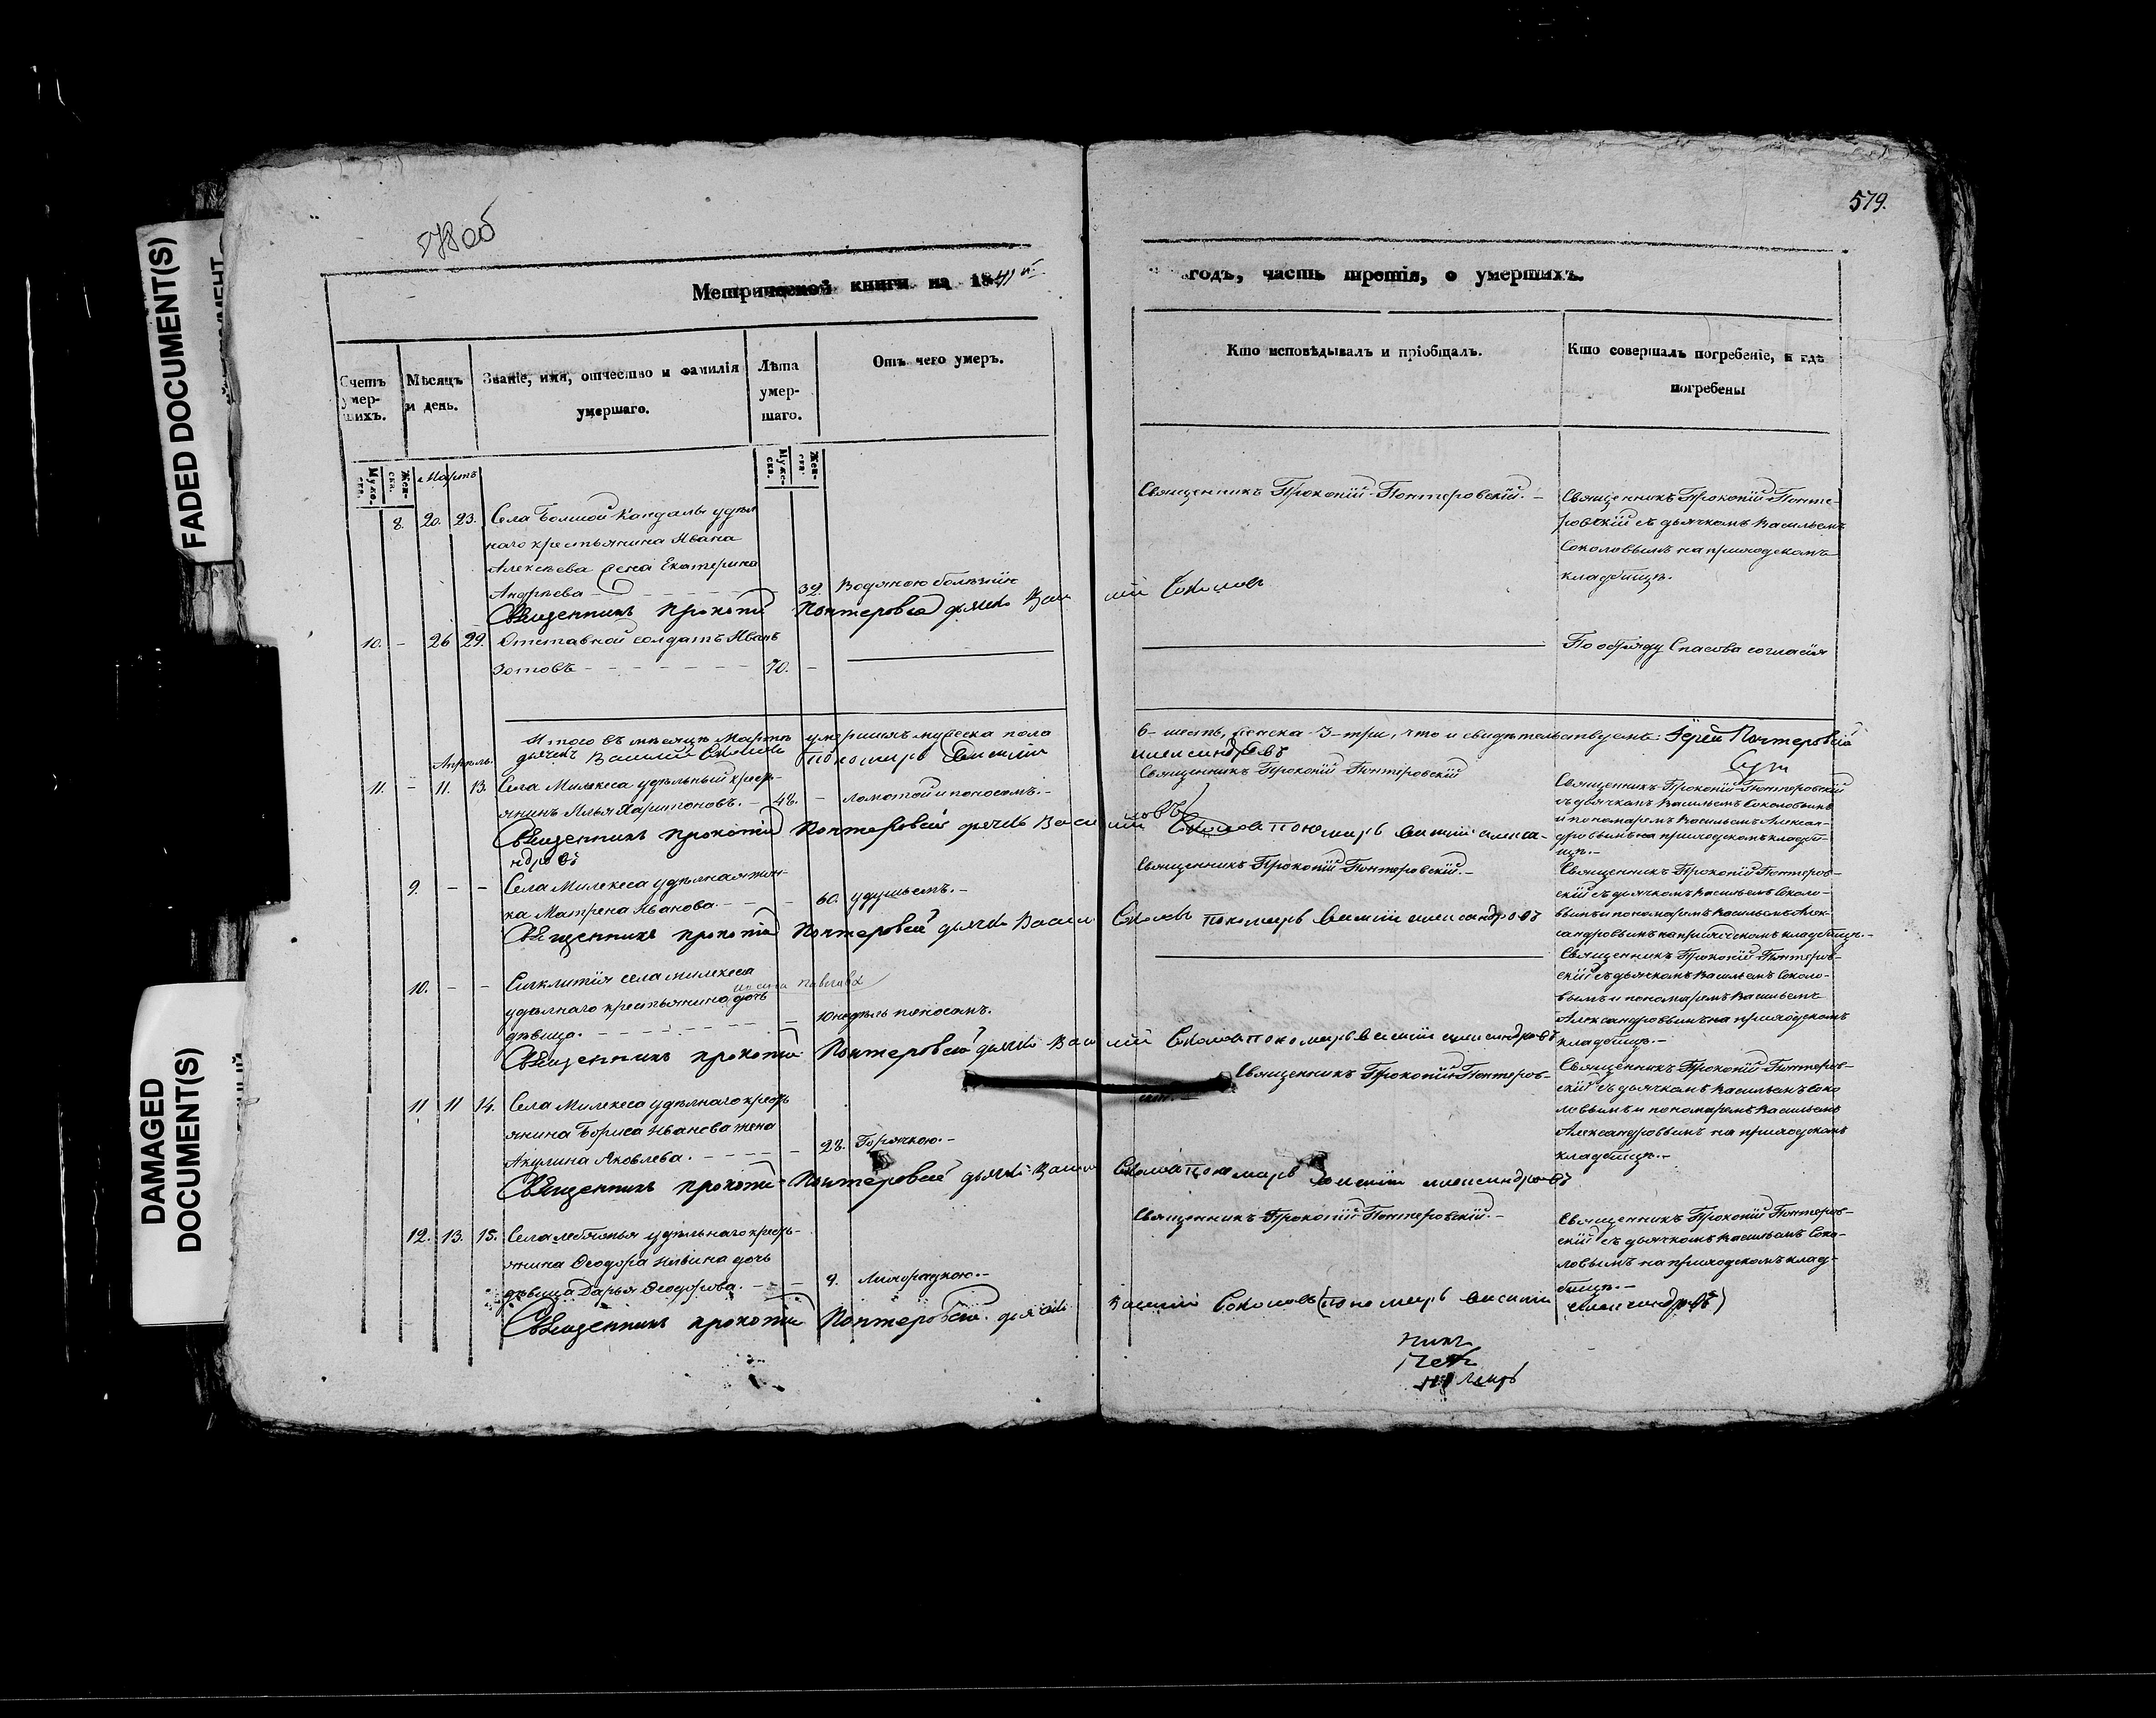 FADED DOCUMENT(S)
DAMAGED
DOCUMENT(S)
578об
579.
Метрической книги на 1841й
годъ, часть третія, о умершихъ.
Счетъ умер-шихъ.
Мѣсяцъ и день.
Званіе, имя, отчество и фамилія умершаго.
Лѣта умер-шаго.
Отъ чего умеръ.
Кто исповѣдывалъ и пріобщалъ.
Кто совершалъ погребеніе, и гдѣ погребены
Муже-ска.
Жен-ска.
Мартъ
Муже-ска.
Жен-ска.
8. 20. 23. Села Болшой Кандалы удѣл
наго крестьянина Ивана
Алексѣева жена Екатерина
Андрѣева 39. Водяною болѣзнію
Священникъ Прокопій Понтеровскій.
Священникъ Прокопій Понте-
ровскій съ дьячкомъ Васильемъ
Соколовымъ на приходскомъ
кладбищѣ.
Священникъ Прокопій Понтеровскій дьячекъ Василій Соколовъ
10. - 26 29. Отставной солдатъ Иванъ
Зотовъ 70. -
По обряду Спасова согласія
Итого въ мѣсяцѣ Мартѣ умершихъ мужеска пола 6- шесть, женска 3- три, что и свидѣтельствуемъ: Іерей Понтеровскій
дьячекъ Василій Соколовъ пономарь Василій Александровъ
Апрѣль.
11. - 11. 13. Села Мелекеса удѣльный кресть-
янинъ Илья Харитоновъ. 48. - ломотой и поносомъ.
Священникъ Прокопій Понтеровскій
Священникъ Прокопій Понтеровскій
съ дьячкомъ Васильемъ Соколовымъ
и пономаремъ Васильемъ Алексан-
дровымъ на приходскомъ кладби-
щѣ.-
Священникъ Прокопій Понтеровскій дьячекъ Василій Соколовъ пономарь Василій Алекса-
ндровъ
9. - - Села Мелекеса удѣлная жон-
ка Матрена Иванова. 60. удушьемъ.-
Священникъ Прокопій Понтеровскій.-
Священникъ Прокопій Понтеров-
скій съ дьячкомъ Васильемъ Соколо-
вымъ и пономаремъ Васильемъ Алек-
сандровымъ на приходскомъ кладбищѣ.-
Священникъ Прокопій Понтеровскій дьячекъ Василій Соколовъ пономарь Василій Александровъ
10. - - Сигклитія села Мелекеса
удѣлнаго крестьянина дочь
дѣвица. 10 недѣль поносомъ.
Священникъ Прокопій Понтеров-
скій съ дьячкомъ Васильемъ Соколо-
вымъ и пономаремъ Васильемъ
Александровымъ на приходскомъ
кладбищѣ.-
Священникъ Прокопій Понтеровскій дьячекъ Василій Соколовъ пономарь Василій Александровъ
11 11 14. Села Мелекеса удѣлнаго кресть
янина Бориса Иванова жена
Акулина Яковлева. 28. Горячкою.-
Священникъ Прокопій Понтеров-
скій.-
Священникъ Прокопій Понтеров-
скій съ дьячкомъ Васильемъ Соко
ловымъ и пономаремъ Васильемъ
Александровымъ на приходскомъ
кладбищѣ.-
Священникъ Прокопій Понтеровскій дьячекъ Василій Соколовъ пономарь Василій Александровъ
12. 13. 15. Села удѣльнаго кресть-
янина Ѳеодора дочь
дѣвица Дарья Ѳеодорова. 9. Лихорадкою.-
Священникъ Прокопій Понтеровскій.-
Священникъ Прокопій Понтеров-
скій съ дьячкомъ Васильемъ Соко-
ловымъ на приходскомъ клад-
бищѣ.-
Священникъ Прокопій Понтеровскій. дьячекъ Василій Соколовъ (пономарь Василій Александровъ)